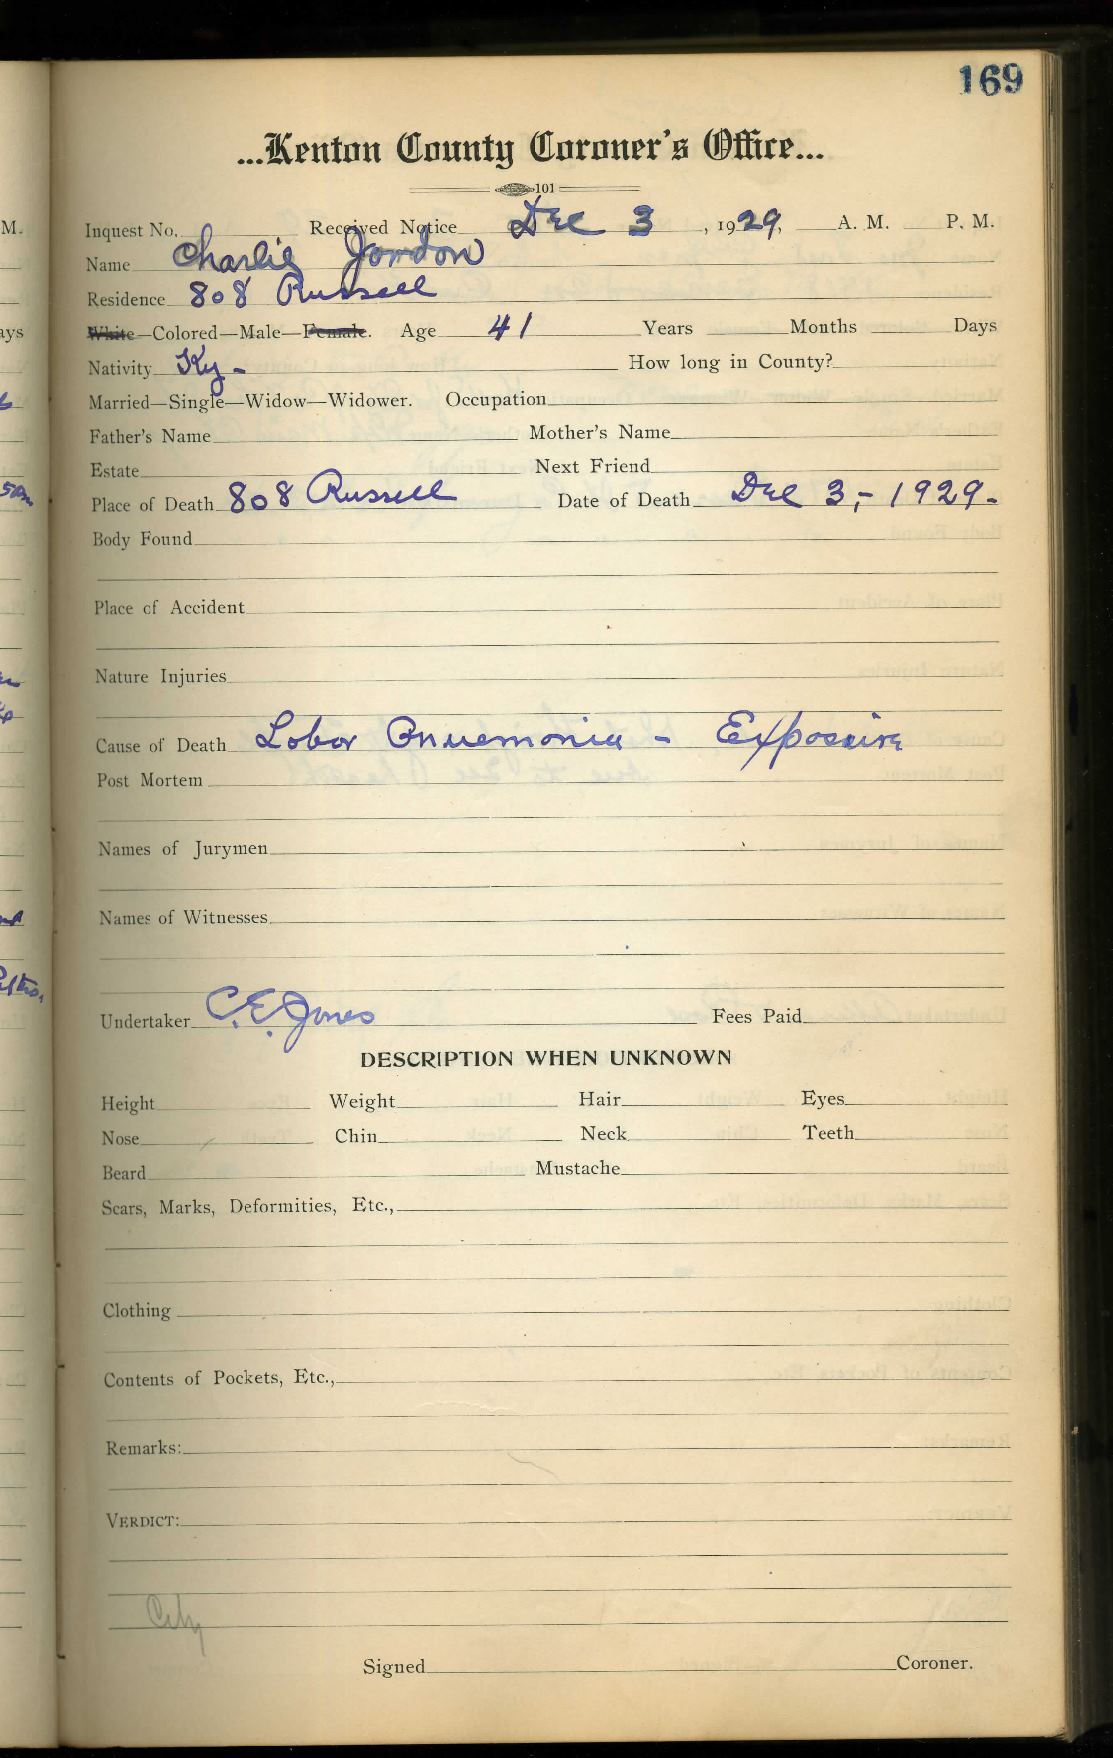 169
...Kenton County Coroner's Office...
101
Inquest No. Received Notice Dec 3, 1929, A. M. P. M.
Name Charlie Jordon
Residence 808 Russell
White—Colored—Male—Female. Age 41 Years Months Days
Nativity Ky- How long in County?
Married—Single—Widow—Widower. Occupation
Father's Name Mother's Name
Estate Next Friend
Place of Death 808 Russell Date of Death Dec 3,- 1929-
Body Found
Place of Accident
Nature Injuries
Cause of Death Lobor Pnuemonia - Exposure
Post Mortem
Names of Jurymen
Names of Witnesses
Undertaker C.E. Jones Fees Paid
DESCRIPTION WHEN UNKNOWN
Height Weight Hair Eyes
Nose Chin Neck Teeth
Beard Mustache
Scars, Marks, Deformities, Etc.,
Clothing
Contents of Pockets, Etc.,
Remarks:
VERDICT:
City
Signed Coroner.